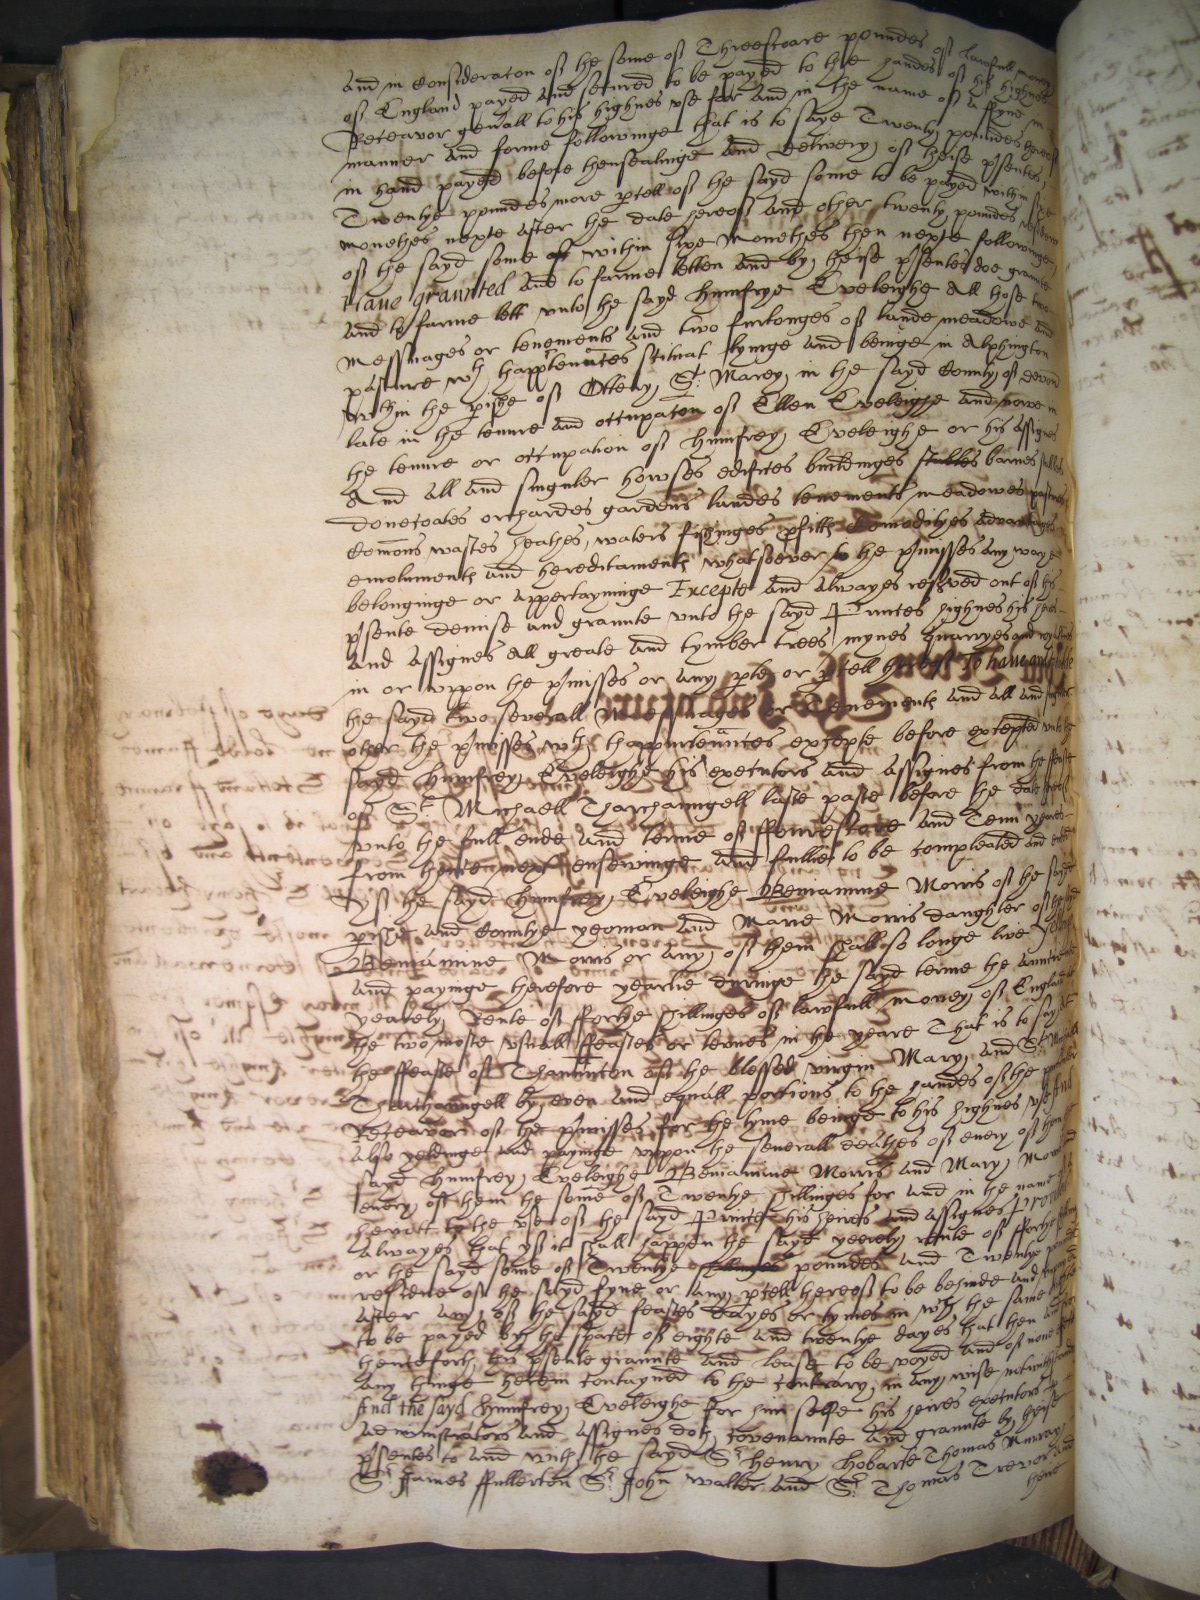 and in Consideracon off the some off Threescoare poundes off lawfull money
off England payed and secured to be payed to the handes off his highnes
Receavor gen'all to his highnes vse for and in the name off a ffyne in
manner and forme followinge that is to saye Twenty poundes thereof
in hand payed before thensealinge and delivery off theise p'sentes
Twentye poundes more p'cell off the sayd some to be payed within sixe
monethes nexte after the date hereoff and other twenty poundes residew
off the sayd some within sixe Monethes then nexte followinge
Haue graunted and to farme letten and by theise p'sentes doe graunte
and to farme lett vnto the sayd Humfrye Eveleighe All those two
Messuages or tenements and two furlonges off lande meadowe and
pasture wth thapp'tenn'ces scituat lyinge and beinge in Alphington
within the p'ishe off Ottery St Marey in the sayd County off Devon
late in the tenure and occupacon off Ellen Eveleighe and nowe in
the tenure or occupation off Humfrey Eveleighe or his assignes
And all and singuler howses edifices buildinges barnes stables
dovecoates orchardes gardens landes tenements meadowes pastures
Comons wastes heathes waters fishinges p'fitts Comodityes advantages
emoluments and hereditaments whatsoever to the p'misses any waye
belonginge or appertayninge Excepte and alwayes res'ved out off this
p'sente demise and graunte vnto the sayd Princes highnes his heires
and assignes all greate and tymber trees mynes quarryes and royallties
in or vppon the p'misses or any p'te or p'cell thereoff To haue and to holde
the sayd two severall Messuages or Tenements and all and singuler
other the p'misses wth thappurtenn'ces excepte before excepted vnto the
sayd Humfrey Eveleighe his executors and assignes from the feaste
off St Michaell Tharchanngell laste paste before the date hereoff
vnto the full ende and terme off ffowrescore and Tenn yeares
from thence next ensewinge and fullie to be compleated and ended
Yff the sayd Humfrey Eveleighe Beniamine Morris off the sayd
p'ishe and Countye yeoman and Marie Morris daughter off the sayd
Beniamine Morris or any off them shall so longe live Yeldinge
and payinge therefore yearlie duringe the sayd terme the auntient
yearely Rente off ffortye shillinges off lawfull money off England at
the two moste vsuall ffeastes or termes in the yeare That is to say At
the ffeaste off Thannunc'on off the blessed virgin Mary and St Michaell
Tharchanngell by even and equall portions to the handes off the p'ticuler
Receavor off the p'misses for the tyme beinge to his highnes vse And
also yeldinge and payinge vppon the severall deathes off every off them the
sayd Humfrey Eveleighe Beniamine Morris and Mary Morris and
every off them the some off Twentye shillinges for and in the name off a
heriott to the vse off the sayd Prince his heires and assignes Provided
alwayes that yff it shall happen the sayd yearely rente off ffortye shillinges
or the sayd some off Twentye poundes and Twentye poundes
residue off the sayd fyne or any p'cell thereoff to be behinde and vnpayed
after any off the sayd feastes dayes or tymes in wch the same ought
to be payed by the space off eighte and twentye dayes that then and from
thenceforth this p'sente graunte and lease to be voyed and off none effecte
any thinge herein contayned to the contrary in any wise notwithstandinge
And the sayd Humfrey Eveleighe for him selfe his heires executors
administrators and assignes doth covenannte and graunte by theise
p'sentes to and with the sayd Sr Henry Hobarte Thomas Murray
Sr James ffullerton Sr John Walter and Sr Thomas Trevor and
there